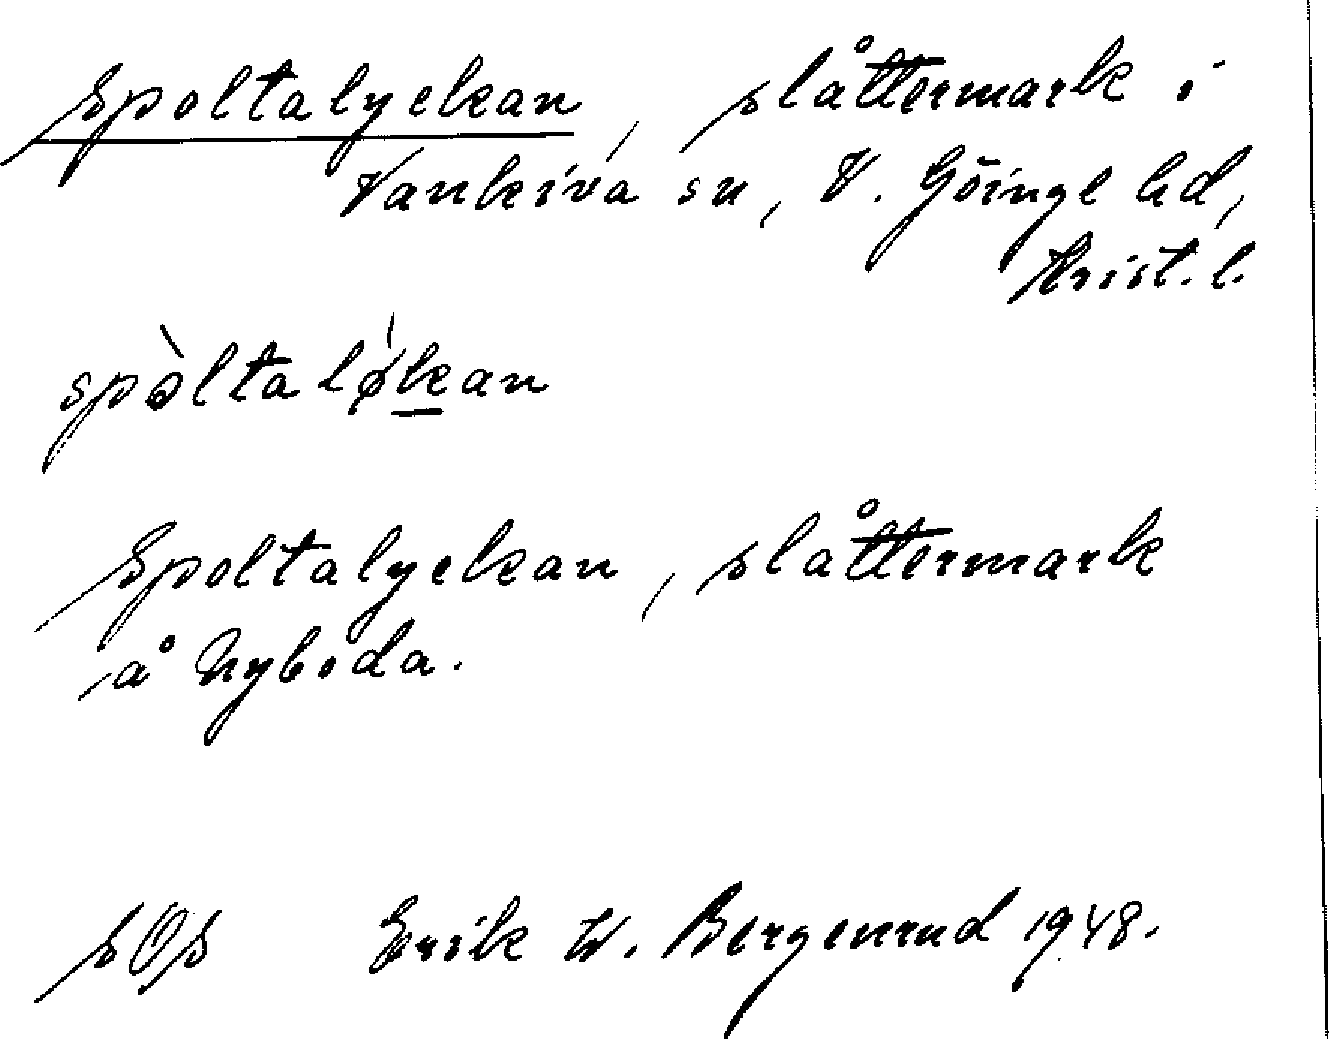 Spoltalyckan, slåttermark i
Vankiva sn, V. Göinge hd,
Krist. l.
spòltaløkan
Spoltalyckan, slåttermark
å Nyboda.
SOS Erik W. Bergenrud 1948.